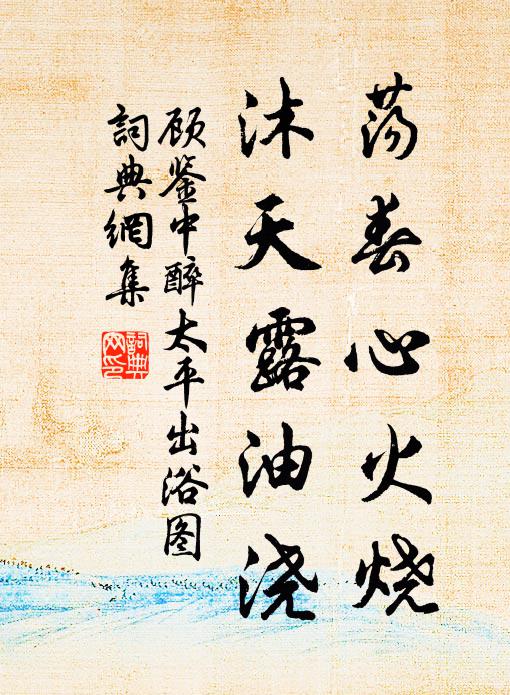 荡春心火烧
沐天露油浇
顾鉴中醉太平出浴图
詞典網集
詞典